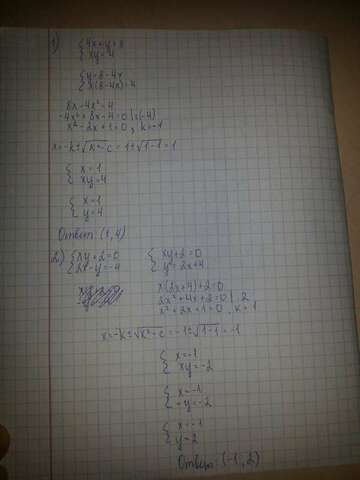 1) { 4x+y=8
{ xy=4
{ y=8-4x
{ x(8-4x)=4
8x-4x²=4
-4x²+8x-4=0 |:(-4)
x²-2x+1=0, k=-1
x=-k±√k²-c=1±√1-1=1
{ x=1
{ xy=4
{ x=1
{ y=4
Ответ: (1,4)
2) { xy+2=0 { xy+2=0
{ 2x-y=-4 { y=2x+4
x(2x+4)+2=0
2x²+4x+2=0 |:2
x²+2x+1=0, k=1
x=-k±√k²-c=-1±√1-1=-1
{ x=-1
{ xy=-2
{ x=-1
{ -y=-2
{ x=-1
{ y=2
Ответ: (-1,2)